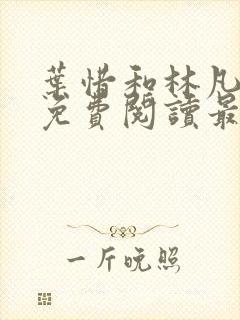 葉惜和林凡
免費閱讀最
一斤晚照